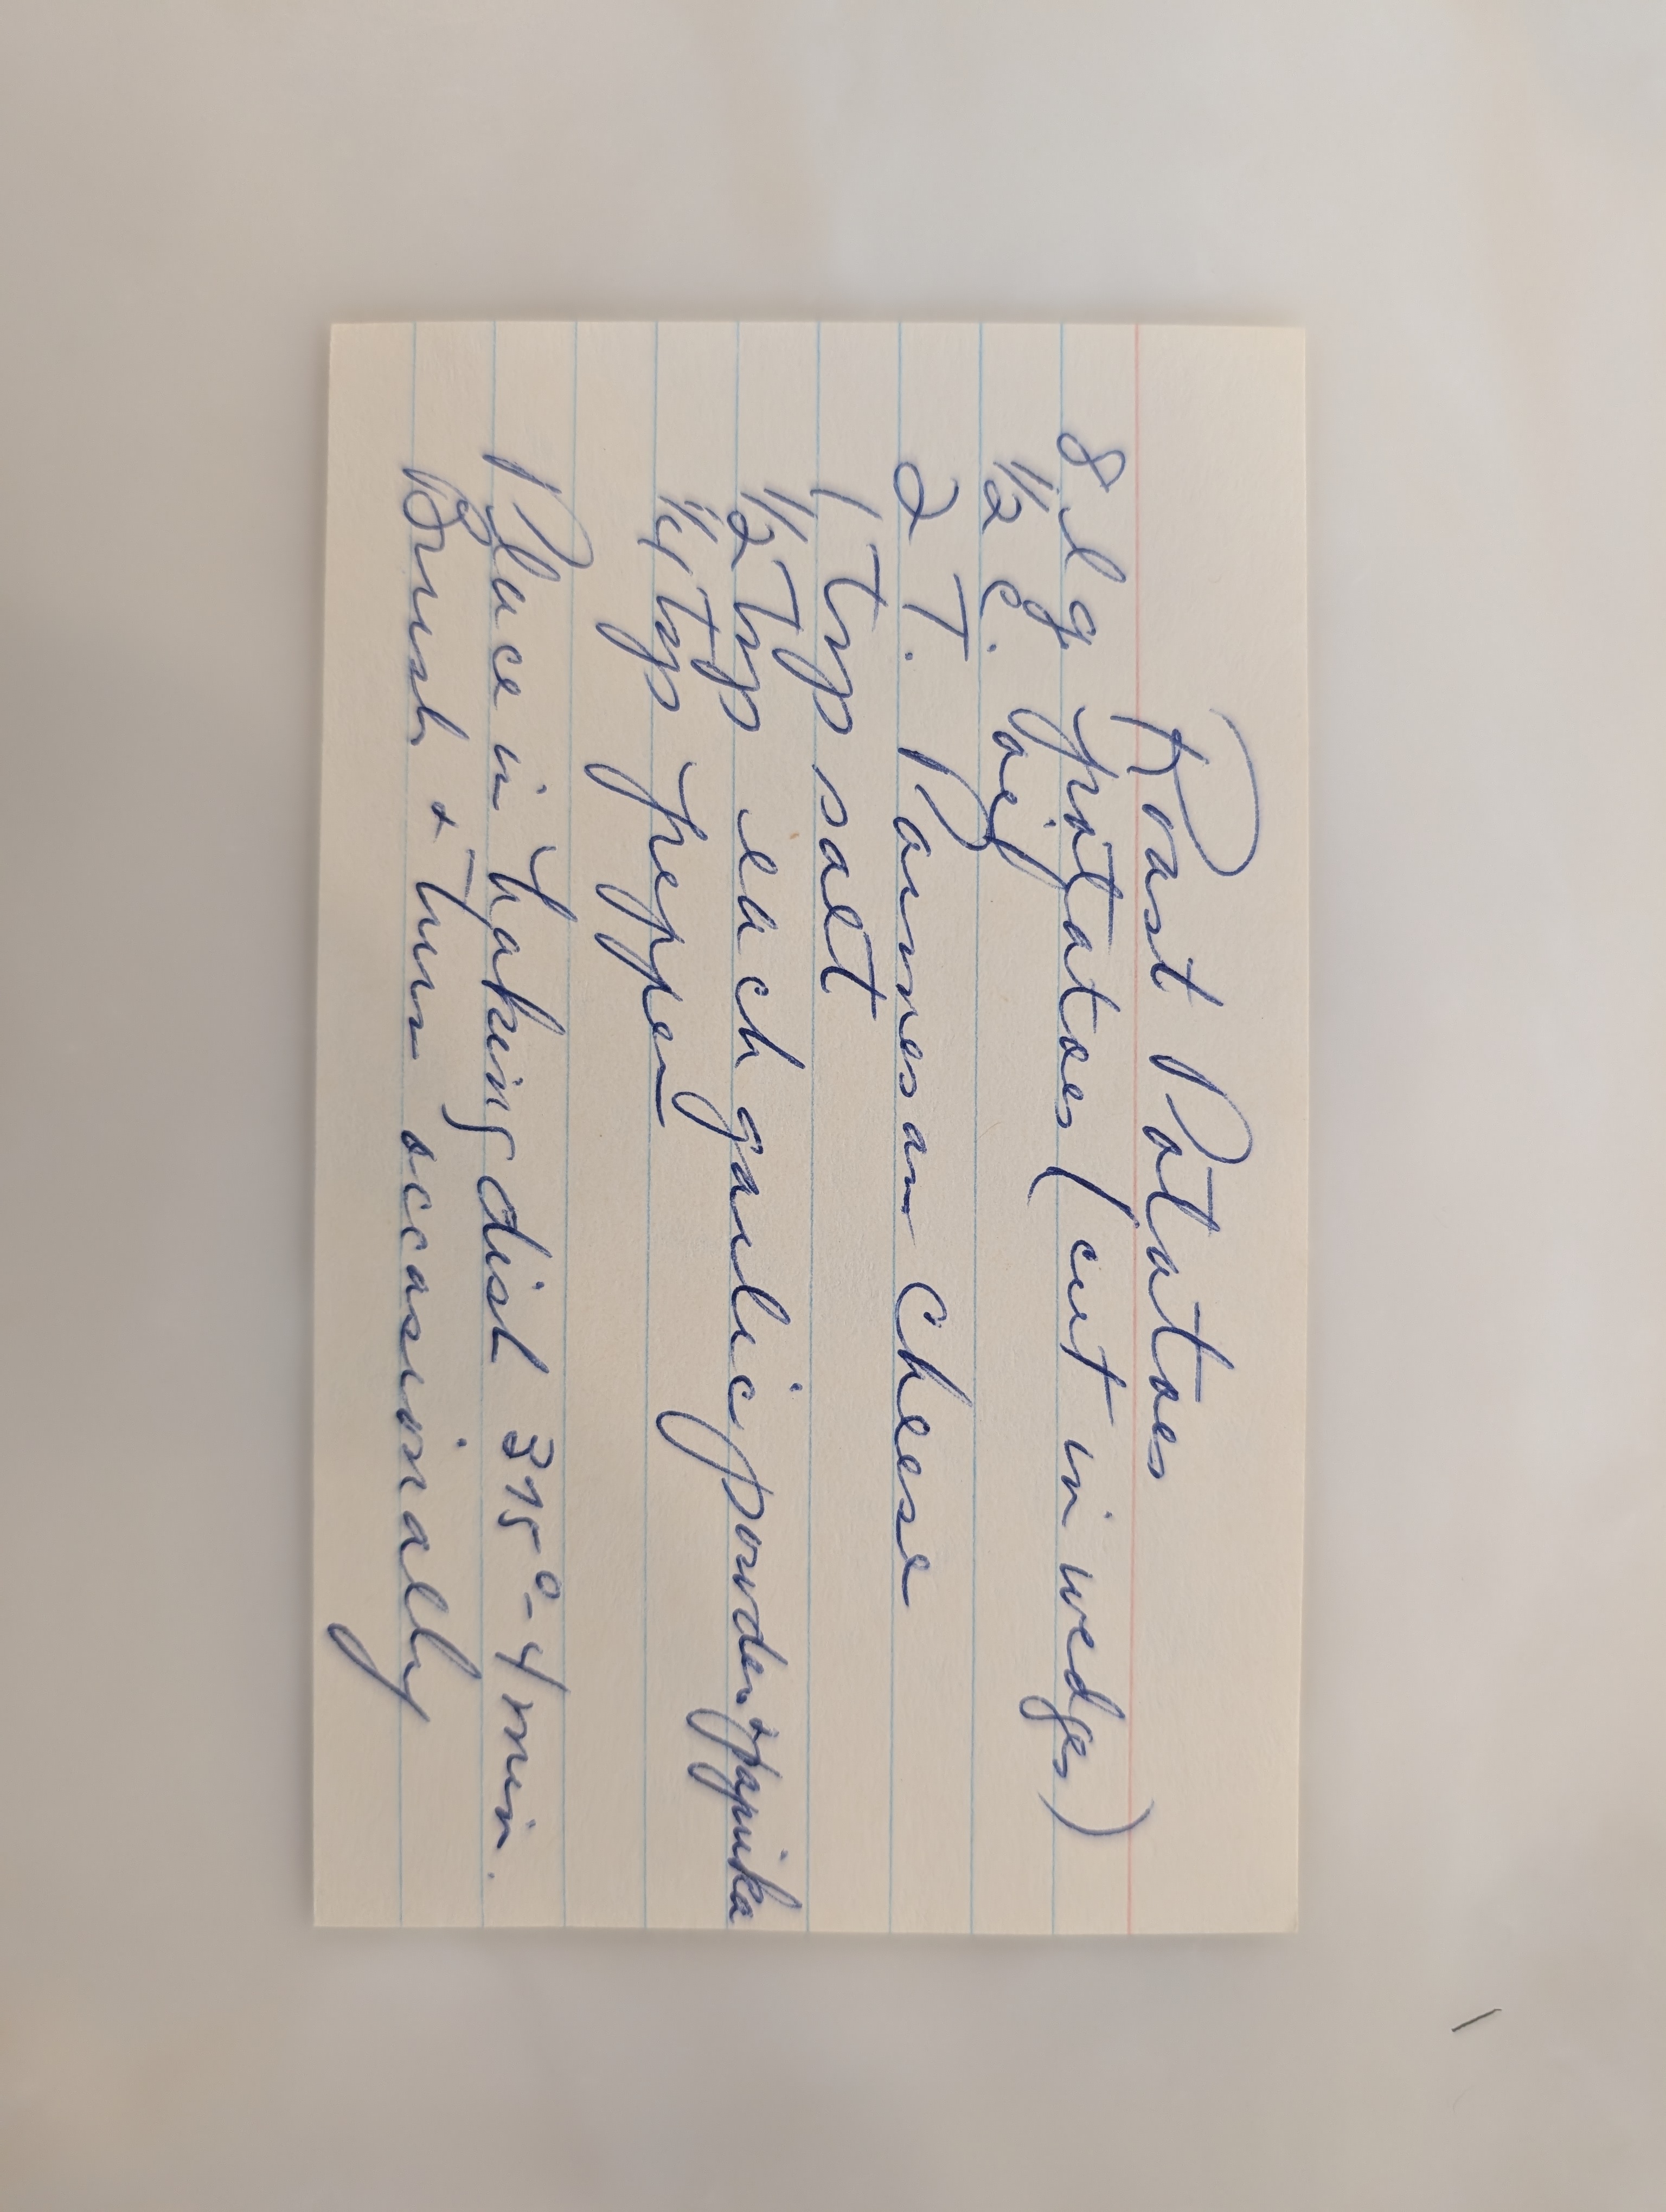 Roast Potatoes
8 lg. potatoes (cut in wedges)
1/2 c. oil
2 T. Parmesan Cheese
1 tsp salt
1/2 tsp each garlic powder + paprika
1/4 tsp pepper
Place in baking dish 375° - 4 min.
Brush + turn occasionally